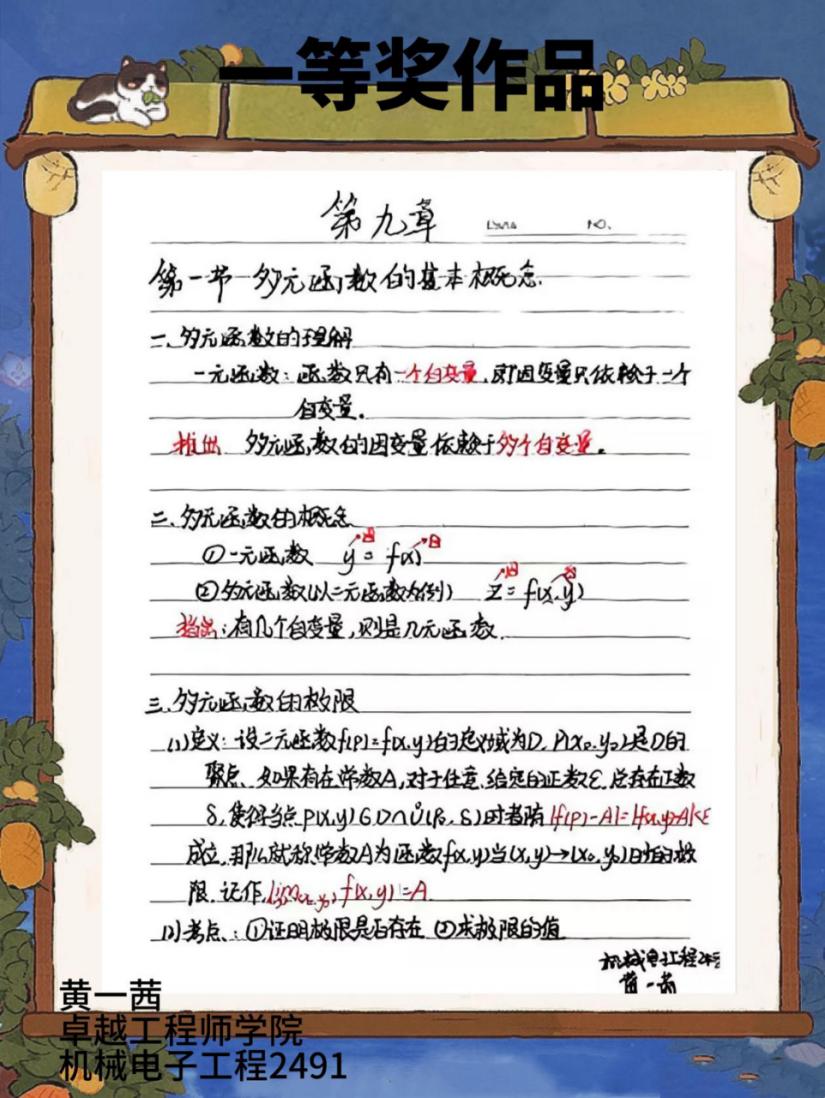 一等奖作品
第九章 Date NO.
第一节 多元函数的基本概念.
一.多元函数的理解
一元函数:函数只有一个自变量,对因变量只依赖于一个
自变量。
推出 多元函数的因变量依赖于多个自变量。
二.多元函数的概念
①一元函数 y=f(x)
②多元函数(以二元函数为例) z=f(x,y)
:有几个自变量,则是几元函数.
三.多元函数的极限
(1)定义:设二元函数f(P)=f(x,y)的定义域为D,P(x₀,y₀)是D的
聚点.如果存在常数A,对于任意给定的正数ε,总存在正数
δ,使得当点P(x,y)∈D∩Ů(P₀,δ)时都有|f(P)-A|=|f(x,y)-A|<ε
成立,那么就称常数A为函数f(x,y)当(x,y)→(x₀,y₀)时的极
限.记作, f(x,y)=A
(2)考点:①证明极限是否存在 ②求极限的值
机械电子工程
黄一茜
黄一茜
卓越工程师学院
机械电子工程2491